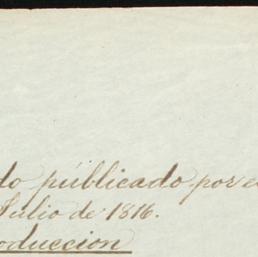 do públicado por e
Julio de 1816.
oduccion